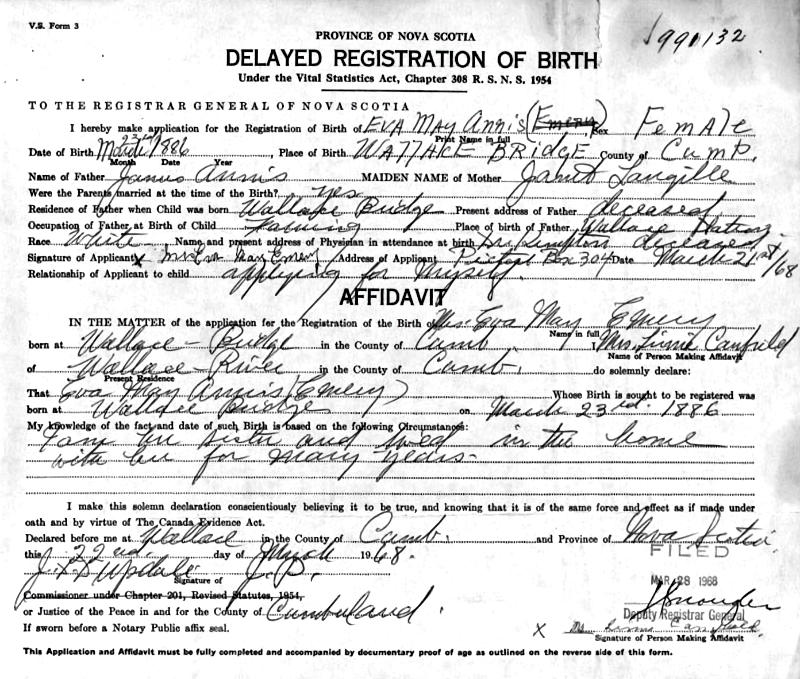 V.S. Form 3
PROVINCE OF NOVA SCOTIA
990132
DELAYED REGISTRATION OF BIRTH
Under the Vital Statistics Act, Chapter 308 R. S. N. S. 1954
TO THE REGISTRAR GENERAL OF NOVA SCOTIA
I hereby make application for the Registration of Birth of EVA MAY Annis (Emery) Sex Female
Print Name in full
Date of Birth March 23rd 1886, Place of Birth WALLACE BRIDGE County of Cump.
Month Date Year
Name of Father James Annis MAIDEN NAME of Mother Janet Langille
Were the Parents married at the time of the Birth? yes
Residence of Father when Child was born Wallace Bridge Present address of Father deceased
Occupation of Father at Birth of Child Farming Place of birth of Father Wallace Station
Race White Name and present address of Physician in attendance at birth Dr. deceased
Signature of Applicant x Mrs Eva May Emery Address of Applicant Pictou Box 304 Date March 21st/68
Relationship of Applicant to child applying for myself
AFFIDAVIT
IN THE MATTER of the application for the Registration of the Birth of Mrs. Eva May Emery
Name in full
born at Wallace - Bridge in the County of Cumb. I Mrs. Canfield
Name of Person Making Affidavit
of Wallace - River in the County of Cumb. do solemnly declare:
Present Residence
That Eva May Annis (Emery) Whose Birth is sought to be registered was
born at Wallace Bridge on March 23rd. 1886
My knowledge of the fact and date of such Birth is based on the following Circumstances:
I am her sister and lived in the home
with her for many years-
I make this solemn declaration conscientiously believing it to be true, and knowing that it is of the same force and effect as if made under
oath and by virtue of The Canada Evidence Act.
Declared before me at Wallace in the County of Cumb. and Province of Nova Scotia
this 22nd. day of March 1968.
FILED
MAR 28 1968
J.P.
Signature of
Commissioner under Chapter 201, Revised Statutes, 1954,
or Justice of the Peace in and for the County of Cumberland.
Deputy Registrar General
If sworn before a Notary Public affix seal.
x Mrs Canfield
Signature of Person Making Affidavit
This Application and Affidavit must be fully completed and accompanied by documentary proof of age as outlined on the reverse side of this form.